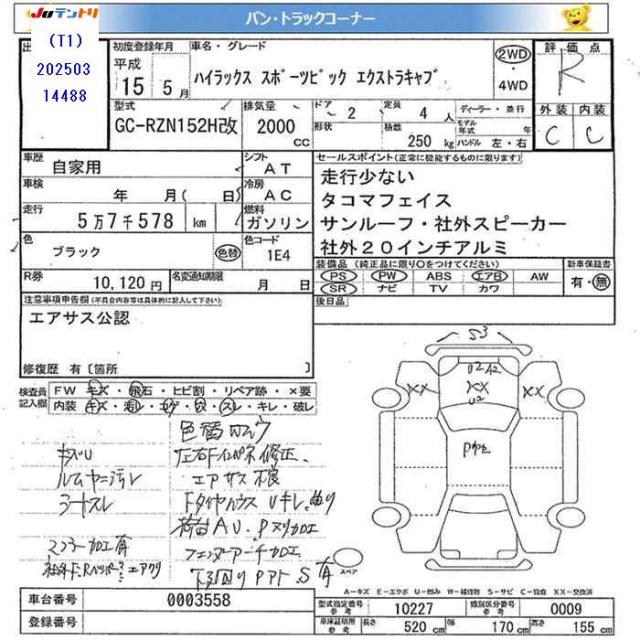 JUテントリ
バン・トラックコーナー
(T1)
202503
14488
初度登録年月
平成
15 5月
車名・グレード
ハイラックス スポーツピック エクストラキャブ
2WD
・
4WD
評価点
R
外装 内装
C C
型式
GC-RZN152H改
排気量
2000
cc
ドア
2
形状
定員
4 人
積載
250 kg
ディーラー・並行
モデル
年式 年
ハンドル 左・右
車歴
自家用
シフト
AT
車検
年 月 ( 日)
冷房
AC
走行
5万7千578 km
燃料
ガソリン
色
ブラック
色替
色コード
1E4
R券
10,120円
名変通知期限
月 日
セールスポイント(正常に機能するものに限ります)
走行少ない
タコマフェイス
サンルーフ・社外スピーカー
社外20インチアルミ
装備品(純正品に限り〇をつけてください)
PS PW ABS エアB AW
SR ナビ TV カワ
新車保証書
有・無
後日品
注意事項申告欄(不具合内容等は具体的に記入して下さい)
エアサス公認
修復歴 有〔箇所
検査員
記入欄
FW キズ・飛石・ヒビ割・リペア跡・×要
内装 キズ・汚レ・コゲ・穴・スレ・キレ・破レ
色替
エアサス不良
キズU
ルームヤニ汚レ
シートスレ
マフラー加工有
フェンダーアーチ加工
S3
U2 A2
XX
U2
XX
XX
スペア
A-キズ E-エクボ U-凹み W-補修跡 S-サビ C-腐食 XX-交換済
車台番号
0003558
登録番号
型式指定番号
10227
類別区分番号
0009
車庫証明用
参考
長さ
520 cm
幅
170 cm
高さ
155 cm